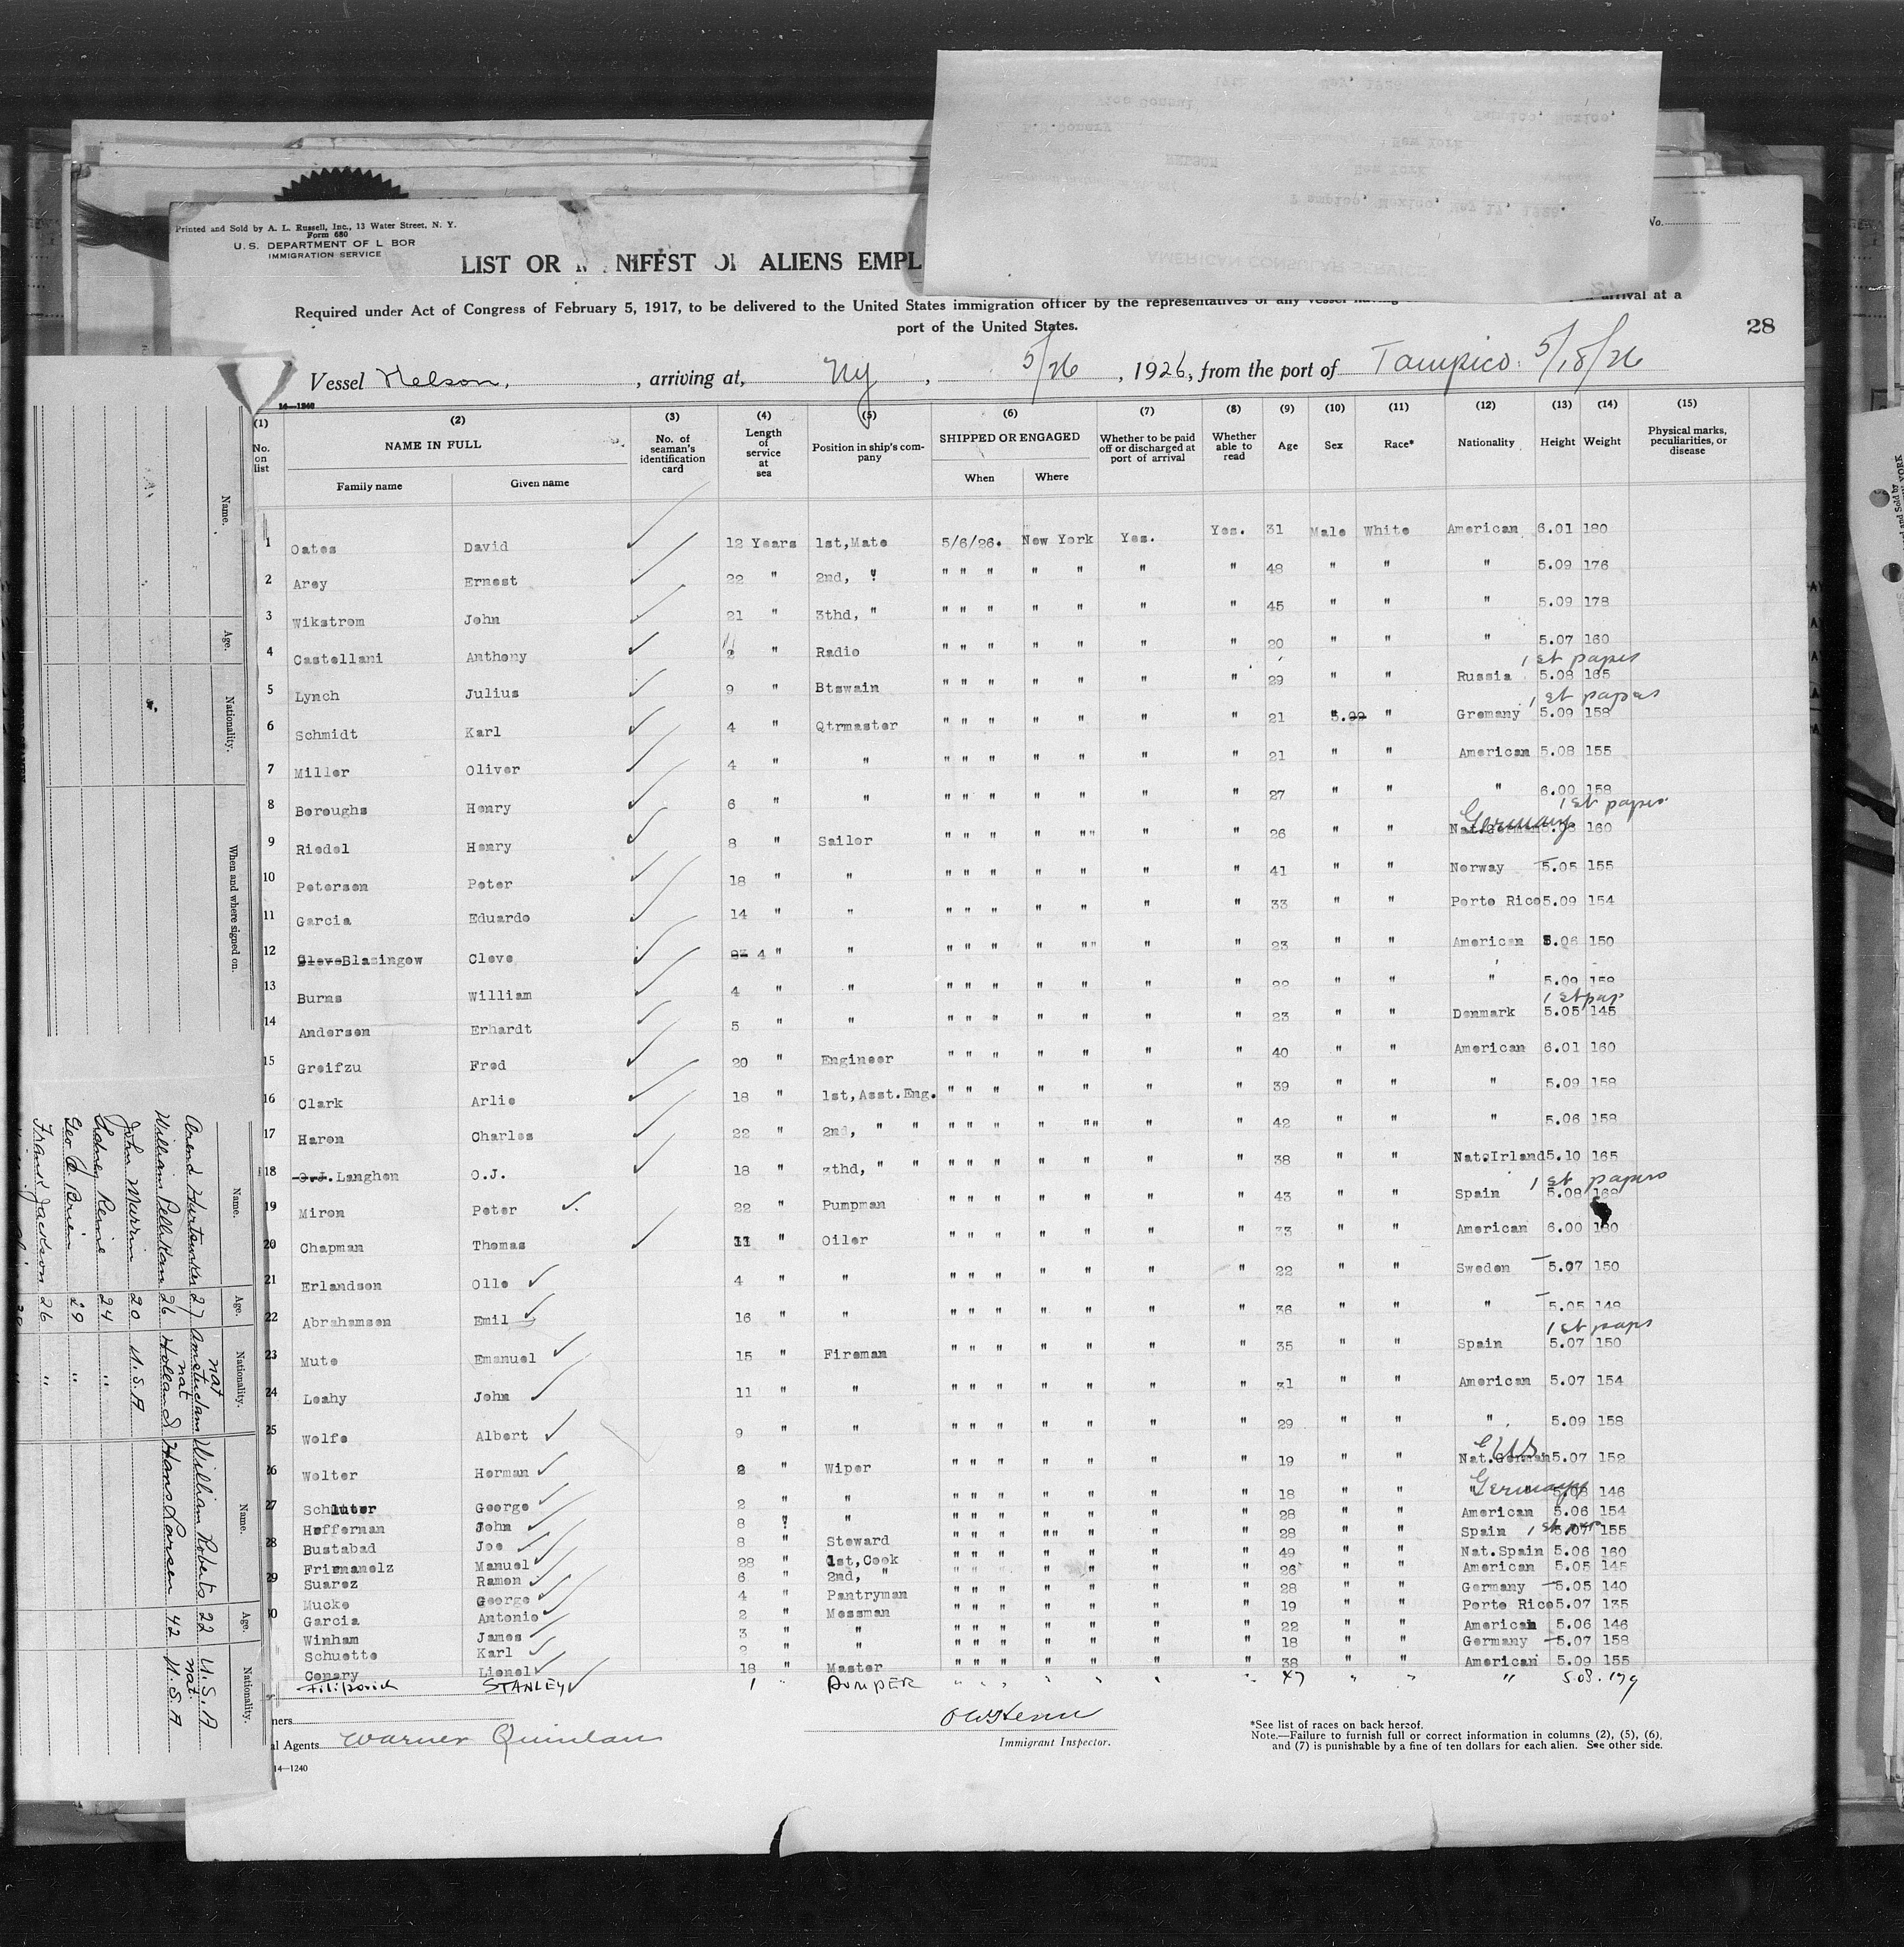 Printed and Sold by A. L. Russell, Inc., 13 Water Street, N. Y.
Form 680
U.S. DEPARTMENT OF L BOR
IMMIGRATION SERVICE
LIST OR NIFEST OF ALIENS EMPL
No.
Required under Act of Congress of February 5, 1917, to be delivered to the United States immigration officer by the representatives of any vessel having arrival at a
port of the United States.
28
Vessel Nelson, , arriving at, Ny , 5/26 , 1926, from the port of Tampico 5/18/26
14—1240
(1) (2) (3) (4) (5) (6) (7) (8) (9) (10) (11) (12) (13) (14) (15)
No. on list NAME IN FULL Family name Given name No. of seaman's identification card Length of service at sea Position in ship's company SHIPPED OR ENGAGED When Where Whether to be paid off or discharged at port of arrival Whether able to read Age Sex Race* Nationality Height Weight Physical marks, peculiarities, or disease
1 Oates David 12 Years 1st,Mate 5/6/26. New York Yes. Yes. 31 Male White American 6.01 180
2 Arey Ernest 22 " 2nd, " " " " " " " " 48 " " " 5.09 176
3 Wikstrom John 21 " 3thd, " " " " " " " " 45 " " " 5.09 178
4 Castellani Anthony 2 " Radio " " " " " " " 20 " " " 5.07 160
1st papers
5 Lynch Julius 9 " Btswain " " " " " " " 29 " " Russia 5.08 165
1st papers
6 Schmidt Karl 4 " Qtrmaster " " " " " " " 21 " " Gremany 5.09 158
7 Miller Oliver 4 " " " " " " " " " 21 " " American 5.08 155
8 Boroughs Henry 6 " " " " " " " " " 27 " " " 6.00 158
1st papers
9 Riedel Henry 8 " Sailor " " " " "" " " 26 " " Germany 160
10 Petersen Peter 18 " " " " " " " " " 41 " " Norway 5.05 155
11 Garcia Eduardo 14 " " " " " " " " " 33 " " Porto Rico 5.09 154
12 Cleve Blasingow Cleve 4 " " " " " " "" " " 23 " " American 5.06 150
13 Burns William 4 " " " " " " " " " " " " 5.09 158
1st pap
14 Andersen Erhardt 5 " " " " " " " " " 23 " " Denmark 5.05 145
15 Greifzu Fred 20 " Engineer " " " " " " " 40 " " American 6.01 160
16 Clark Arlie 18 " 1st,Asst.Eng. " " " " " " " 39 " " " 5.09 158
17 Haron Charles 22 " 2nd, " " " " " " "" " " 42 " " " 5.06 158
18 O.J. Langhon O.J. 18 " 3thd, " " " " " " " " " 38 " " Nat.Irland 5.10 165
1st papers
19 Miron Peter 22 " Pumpman " " " " " " " 43 " " Spain 5.08 168
20 Chapman Thomas 11 " Oiler " " " " " " " 33 " " American 6.00 180
21 Erlandson Olle 4 " " " " " " " " " 22 " " Sweden 5.07 150
22 Abrahamsen Emil 16 " " " " " " " " " 36 " " " 5.05 148
1st paps
23 Mute Emanuel 15 " Fireman " " " " " " " 35 " " Spain 5.07 150
24 Leahy John 11 " " " " " " " " " 31 " " American 5.07 154
25 Wolfe Albert 9 " " " " " " " " " 29 " " " 5.09 158
26 Wolter Herman 2 " Wiper " " " " " " " 19 " " Nat.German 5.07 152
27 Schluter George 2 " " " " " " " " " 18 " " Germany 5.08 146
Heffernan John 8 " " " " " " " " " 28 " " American 5.06 154
28 Bustabad Joe 8 " Steward " " " "" " " 28 " " Spain 1st pap 5.07 155
Frirmanelz Manuel 28 " 1st,Cook " " " " " " " 49 " " Nat.Spain 5.06 160
29 Suarez Ramon 6 " 2nd, " " " " " " " " 26 " " American 5.05 145
Mucke George 4 " Pantryman " " " " " " " 28 " " Germany 5.05 140
30 Garcia Antonio 2 " Messman " " " " " " " 19 " " Porto Rico 5.07 135
Winham James 3 " " " " " " " " " 22 " " American 5.06 146
Schuette Karl 2 " " " " " " " " " 18 " " Germany 5.07 158
Conary Lionel 18 " Master " " " " " " " 38 " " American 5.09 155
Filipovich STANLEY 1 " PUMPER " " " " " " " 47 " " " 5.08 179
ners
al Agents Warner Quinlan
Immigrant Inspector.
*See list of races on back hereof.
Note.—Failure to furnish full or correct information in columns (2), (5), (6),
and (7) is punishable by a fine of ten dollars for each alien. See other side.
14—1240
Name. Age. Nationality. When and where signed on.
Name. Age. Nationality. Name. Age. Nationality.
27 nat Amsterdam William Roberts 22 U.S.A
William Pellikan 26 nat Holland Hans Larsen 42 nat. U.S.A
John Murrin 20 U.S.A
Sidney Reine 24 "
Geo O'Brien 29 "
Frank Jackson 26 "
AMERICAN CONSULAR SERVICE
Tampico, Mexico, May 17, 1926.
New York
NELSON
New York
Vice Consul
Tampico, Mexico,